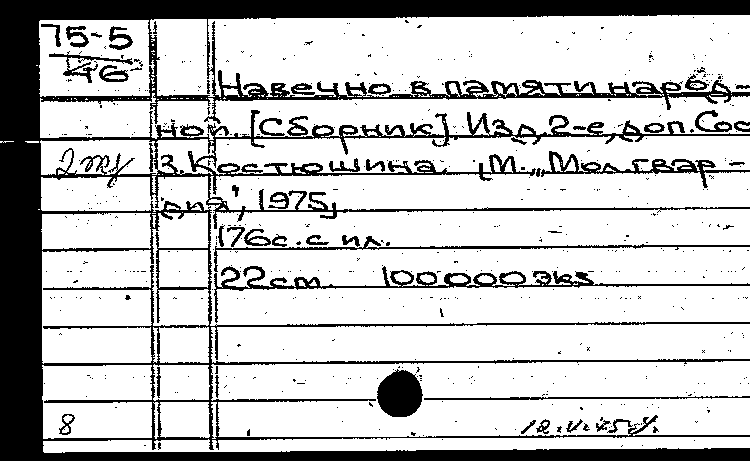 75-5
46
Навечно в памяти народ-
ной. [Сборник]. Изд. 2-е, доп. Сос
2 экз З. Костюшина. [М., „Мол. гвар-
дия", 1975]
176с. с ил.
22см 100000 экз
8